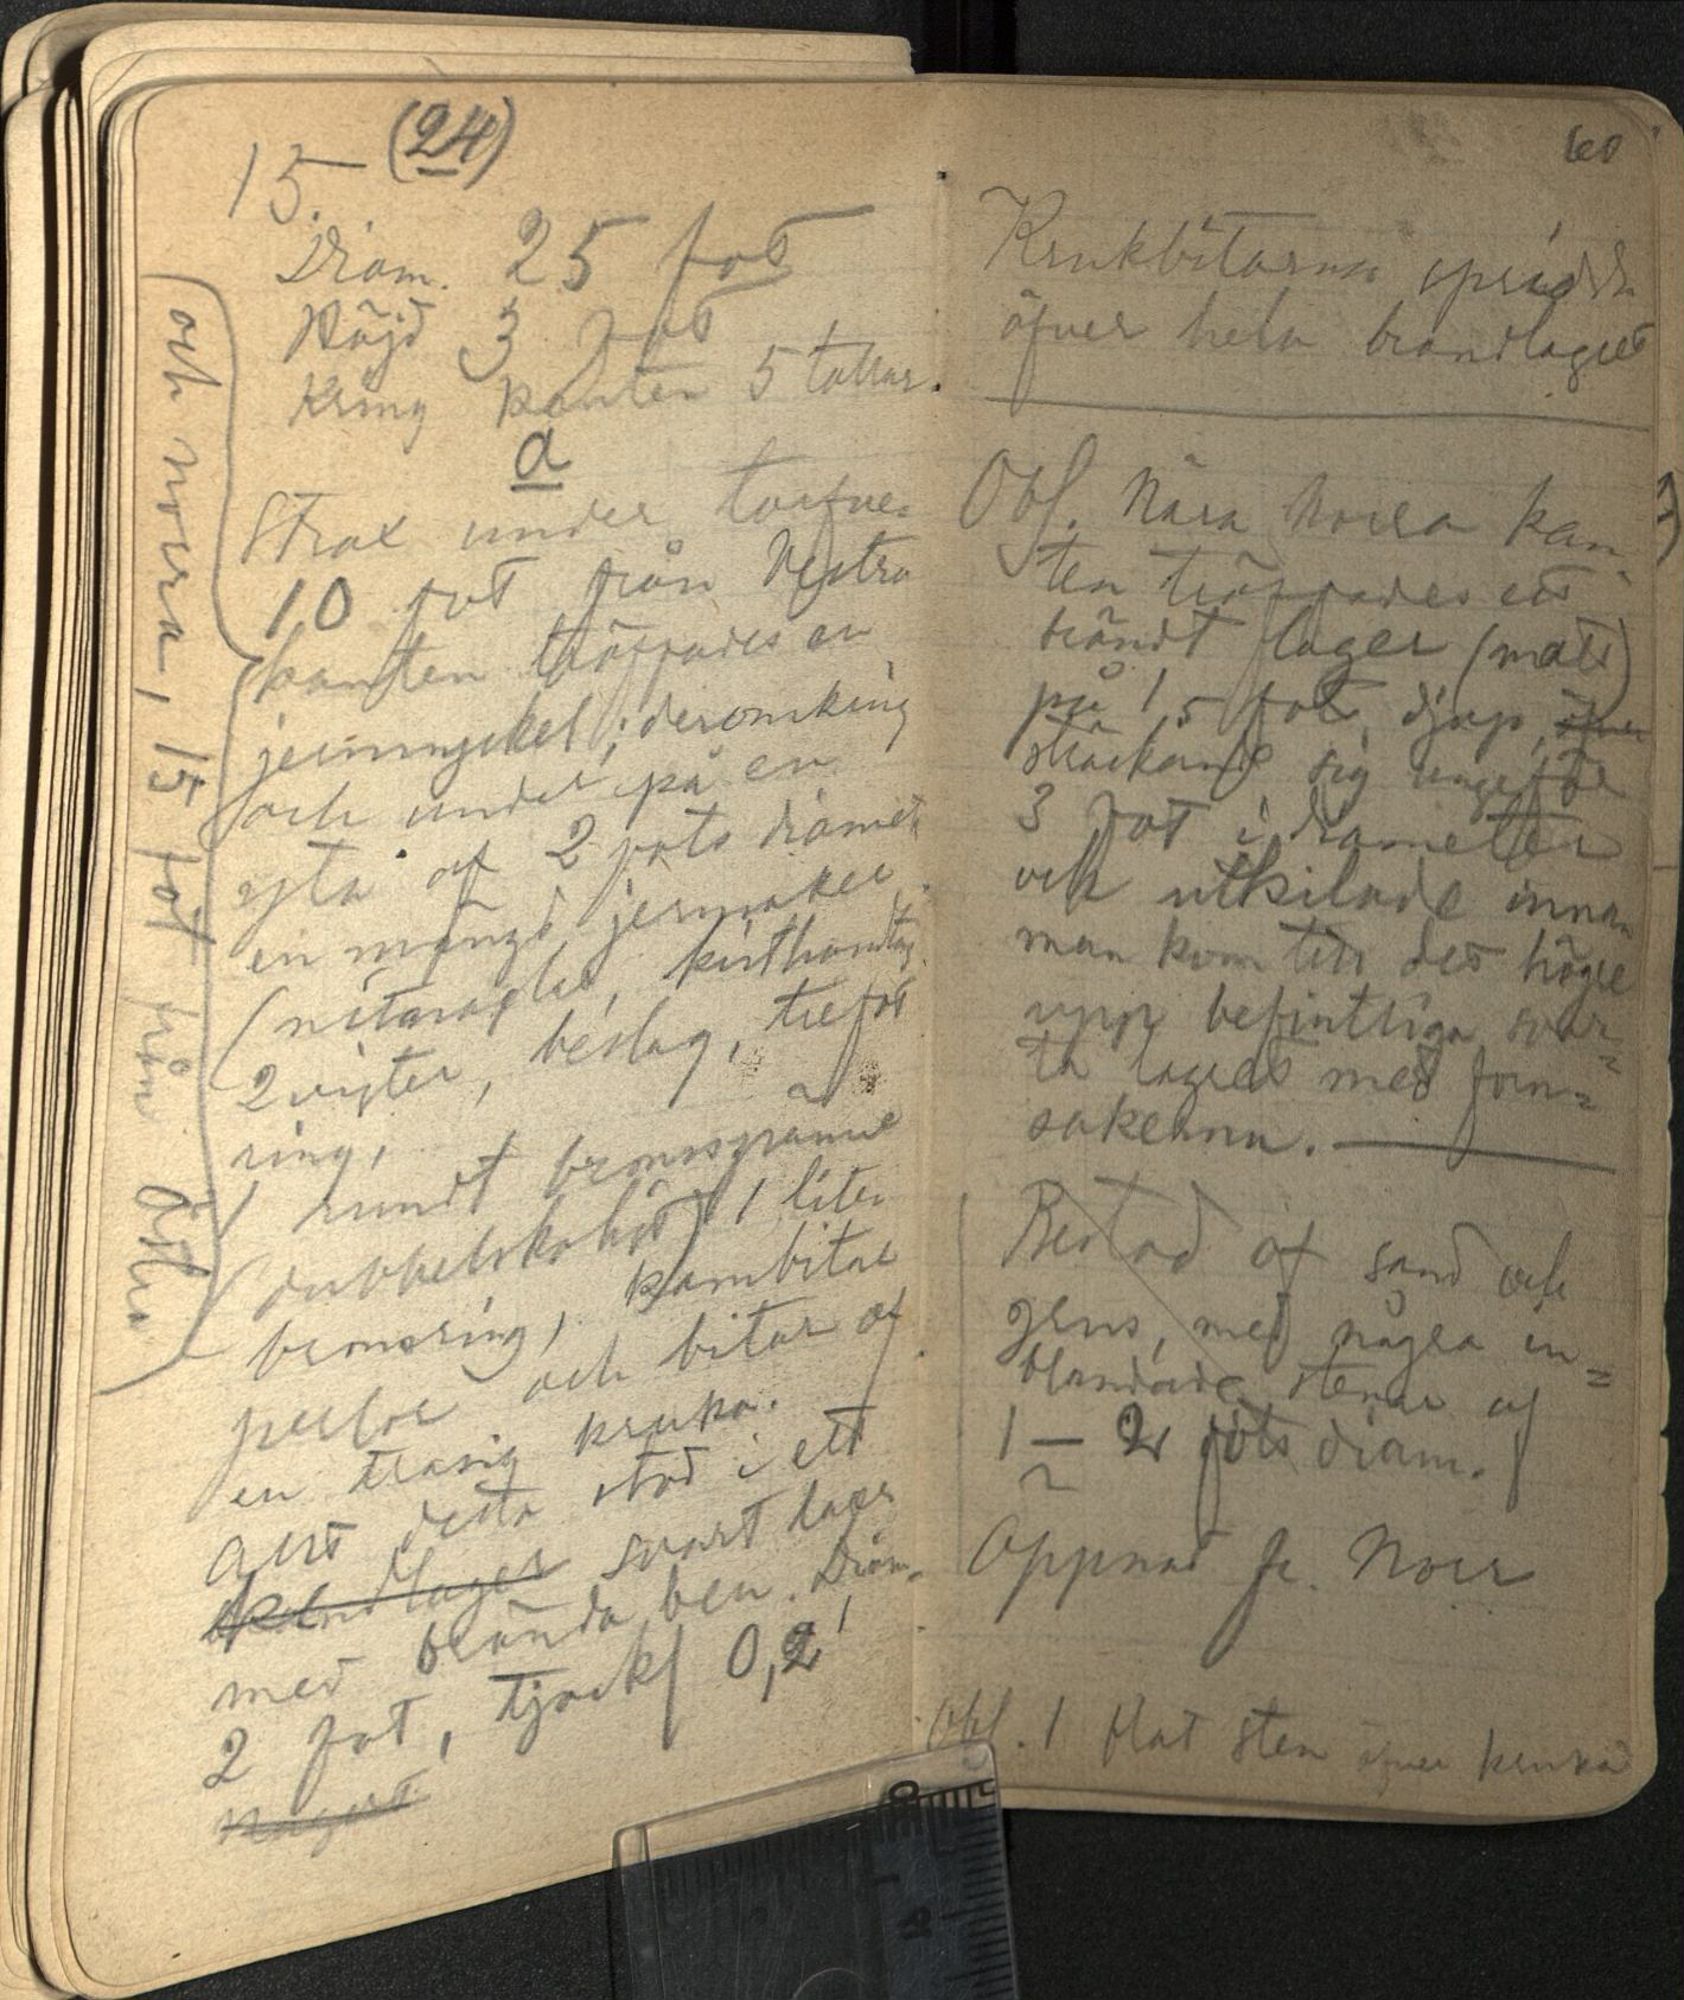 (24)
15.
Diam. 25 fot
Höjd 3 fot
Kring kanten 5 tallar.
a
Strax under torfven
10 fot från Vestra
kanten träffades en
jernnyckel; deromkring
och under på en
yta af 2 fots diamet.
en mängd jernsaker
(nitnaglar, kisthandtag,
2 vigter, beslag, trefot
ring,
1 rundt bronsspänne
(dubbelskaligt) 1 liten
bronsring, kambitar
perlor och bitar af
en trasig kruka.
Allt detta stod i ett
brandlager svart lager
med brända ben. Diam.
2 fot, tjockl 0,2'
Något
och norra, 15 fot från östra
60
Krukbitarna spridda
öfver hela brandlagret
Obs. Nära Norra kan-
ten träffades ett
brändt lager (matt)
på 1,5 fots djup, öfver
sträckande sig ungefär
3 fot i diameter
och utkilade innan
man kom till det högre
upp befintliga svar=
ta lagret med forn=
sakerna.
Bestod af sand och
grus, med några in=
blandade stenar af
1 — 2 fots diam.
Öppnad fr. Norr
Obs. 1 flat sten öfver krukan